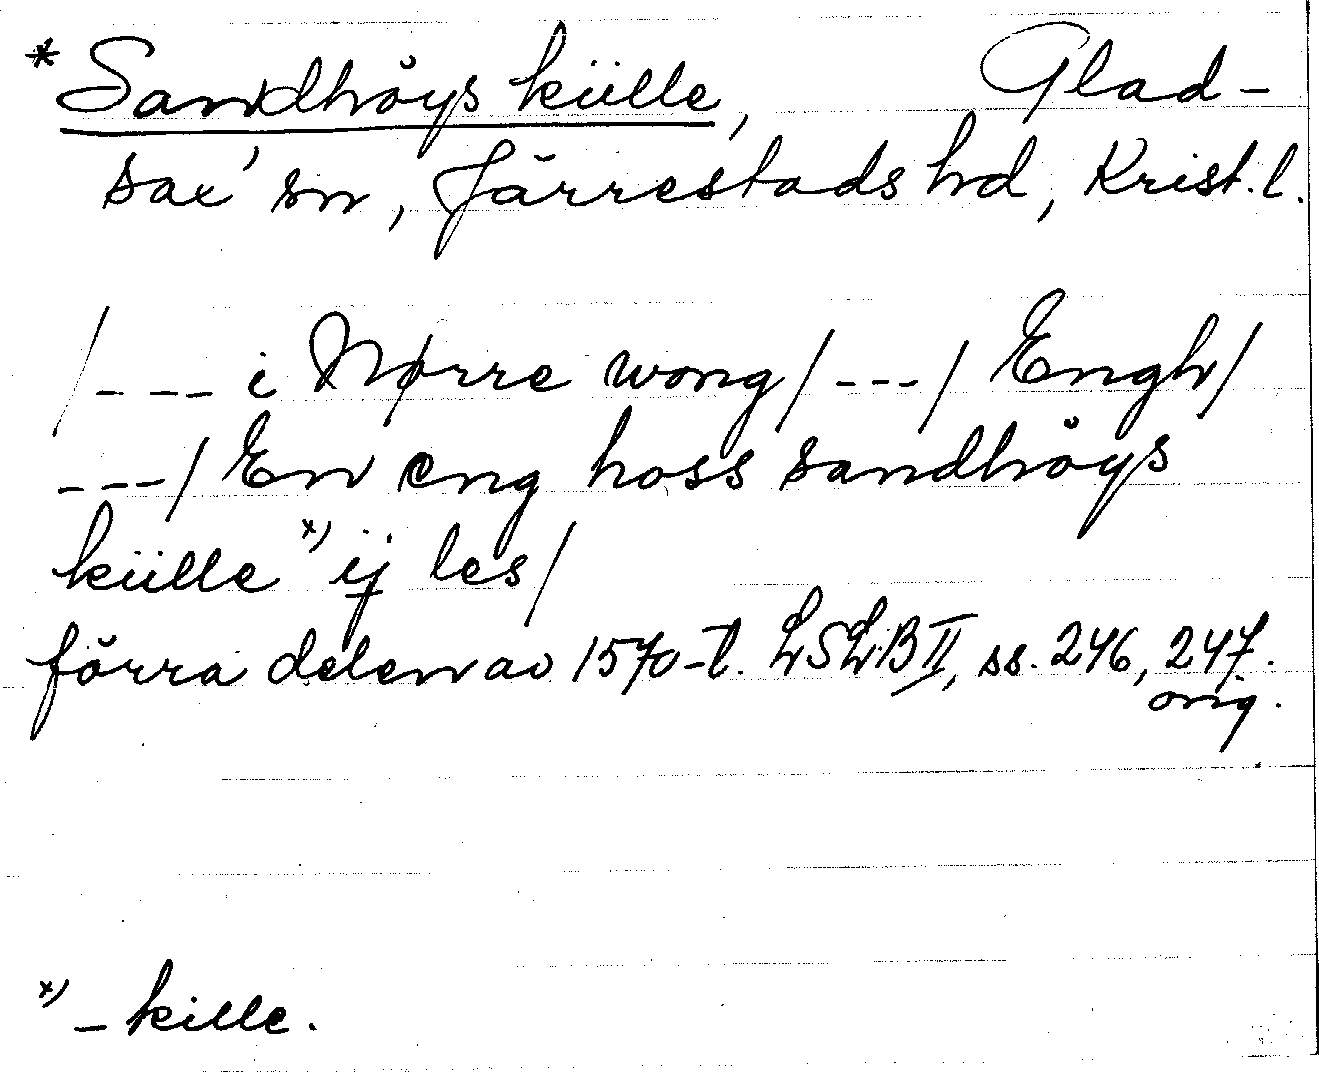 * Sandhöys külle, Glad-
sax' sn, Järrestads hd, Krist. l.
/--- i Nørre wong/---/ Engh/
---/ En eng hoss sandhöys
külle x) ij les/
förra delen av 1570-t. LSLB II, ss. 246, 247.
orig.
x) - kille.